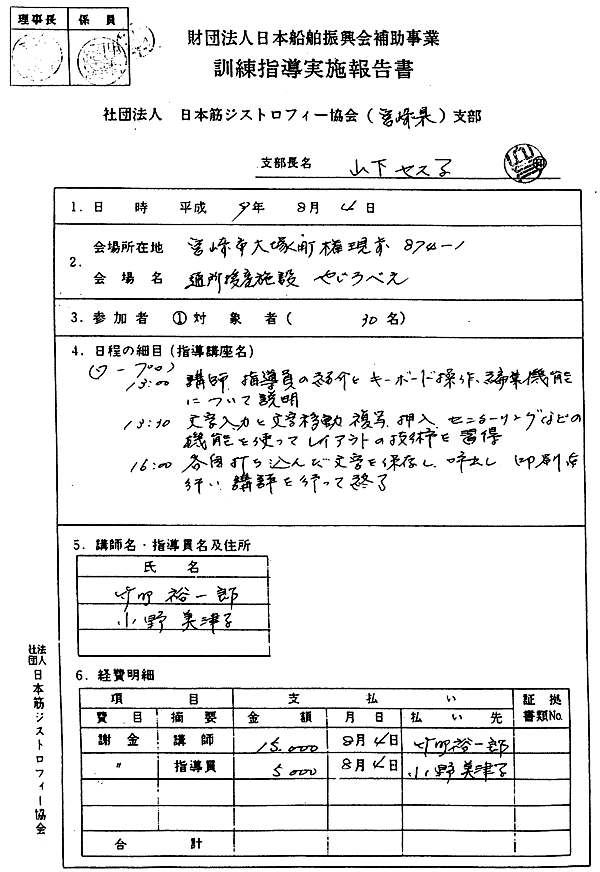 理事長 係員
財団法人日本船舶振興会補助事業
訓練指導実施報告書
社団法人 日本筋ジストロフィー協会(宮崎県)支部
支部長名 山下ヤス子
1.日 時 平成 9年 8月 4日
2.
会場所在地 宮崎市大塚町権現前 874-1
会場名 通所授産施設 やじろべえ
3.参加者 ①対象者( 30名)
4.日程の細目(指導講座名)
(ワープロ)
13:00 講師、指導員の紹介とキーボード操作、編集機能
について説明
13:30 文字入力と文字移動 複写、挿入、センターリングなどの
機能を使ってレイアウトの技術を習得
16:00 各自打ち込んだ文字を保存し、呼出し 印刷を
行い、講評を行って終了
5.講師名・指導員名及住所
氏 名
裕一郎
小野 美津子
6.経費明細
項 目 支 払 い 証拠書類No.
費目 摘要 金額 月日 払い先
謝金 講師 15,000 8月4日 裕一郎
〃 指導員 5,000 8月4日 小野美津子
合 計
社団法人日本筋ジストロフィー協会